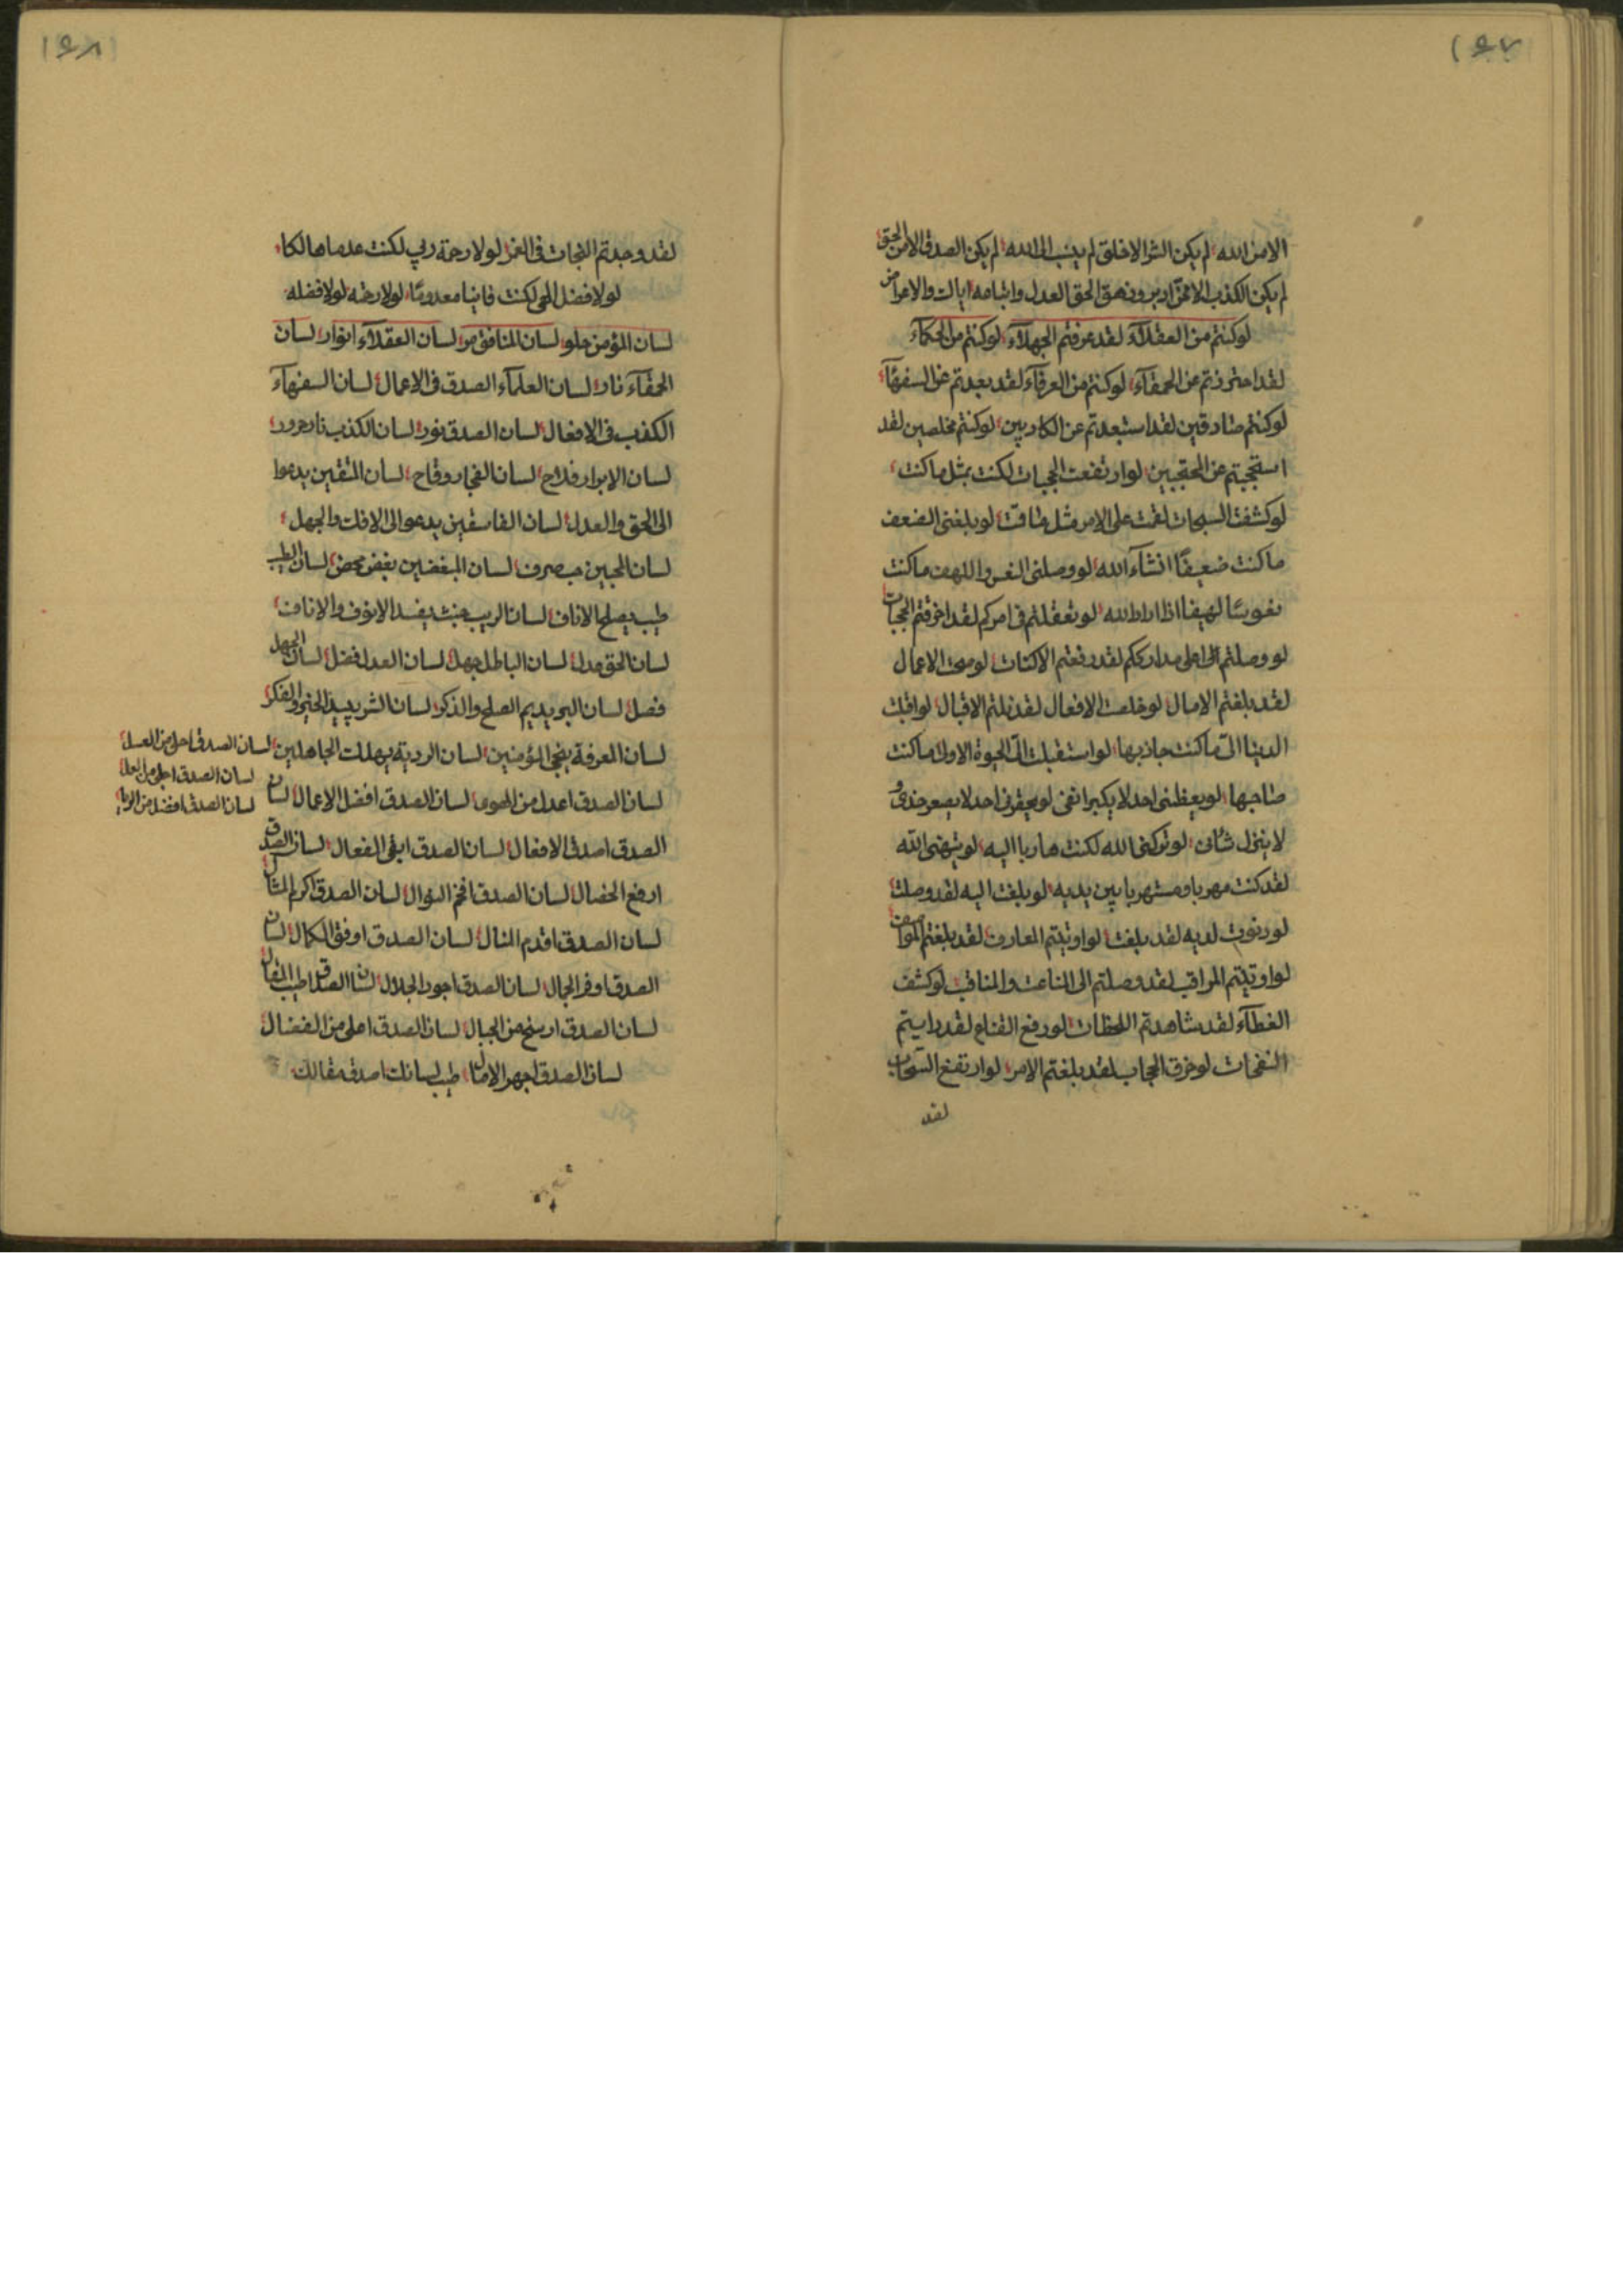 ١٤٧
الا من الله لم يكن الشر الا خلق لم ينسب الى الله لم يكن الصدق الا من الحق
لم يكن الكذب الا ممن ادبر وزهق الحق العدل واتباعه اياك والاعراض
لو كنتم من العقلآء لقد عرفتم الجهلآء لو كنتم من الحكماء
لقد احترزتم عن الحمقآء لو كنتم من العرفآء لقد بعدتم عن السفهآء
لو كنتم صادقين لقد استبعدتم عن الكاذبين لو كنتم مخلصين لقد
استحجبتم عن المحتجبين لو ارتفعت الحجبات لكنت بمثل ما كنت
لو كشفت السبحات لقت على الامر مثل بلغنى الضعف
ما كنت ضعيفًا انشآء الله لو وصلنى واللهف ما كنت
لهيفا اذا اراد الله لو تعقلتم فى امركم لقد اخرقتم الحجبات
لو وصلتم الى اعلى مدارككم لقد رفعتم لو صحت الاعمال
لقد بلغتم الامال لو خلصت الافعال لقد نلتم الاقبال لو اقبلت
الدنيا الىّ ما كنت جاذبها لو استقبلت الىّ الحيوة الاولى ما كنت
صاحبها لو يعظمنى احد لا يكبر انفى لو يحقرنى احد لا يصعر خدى و
لا ينزل شأنى لو تركنى الله لكنت هاربا اليه لو الله
لقد كنت مهربا بين يديه لو بلغت اليه لقد وصلت
لو دنوت لديه لقد بلغت لو اوتيتم المعارف لقد بلغتم المواصف
لو اوتيتم المراقب لقد وصلتم الى المناعت والمناقب لو كشف
الغطآء لقد شاهدتم اللحظات لو رفع القناع لقد رايتم
النفحات لو خرق الحجاب لقد بلغتم الامر لو ارتفع السحاب
لقد
١٤٨
لقد وجدتم النجات فى لو لا رحمة ربى لكنت عدما هالكا
لو لا فضل الهى لكنت فانيا معدومًا لو لا رحمته لو لا فضله
لسان المؤمن حلو لسان المنافق مر لسان العقلآء انوار لسان
الحمقآء نار لسان العلمآء الصدق فى الاعمال لسان السفهآء
الكذب فى الافعال لسان الصدق نور لسان الكذب نار حرور
لسان الابرار فلاح لسان الفجار وقاح لسان المتقين يدعوا
الى الحق والعدل لسان الفاسقين يدعوا الى الافك والجهل
لسان المحبين حب صرف لسان المبغضين بغض محض لسان الطيب
طيب يصلح الاناف لسان الريب خبث يفسد الانوف والاناف
لسان الحق عدل لسان الباطل جهل لسان العدل فضل لسان الجهل
فصل لسان البر يديم الصلح والذكر لسان الشر الخير والفكر
لسان المعرفة ينجى المؤمنين لسان الردية يهلك الجاهلين
لسان الصدق احلى من العسل
لسان الصدق اجلى من
لسان الصدق افضل من
لسان الصدق اعدل من لسان الصدق افضل الاعمال لسان
الصدق اصدق الافعال لسان الصدق ابقى الفعال لسان الصدق
ارفع الخصال لسان الصدق افخم النوال لسان الصدق اكرم المثال
لسان الصدق اقدم المنال لسان الصدق اوفق الكمال لسان
الصدق اوفر الجمال لسان الصدق اجود الجلال لسان الصدق اطيب المقال
لسان الصدق ارسخ من الجبال لسان الصدق اعلى من الفضال
لسان الصدق اجهر الامال طيب لسانك اصدق مقالك